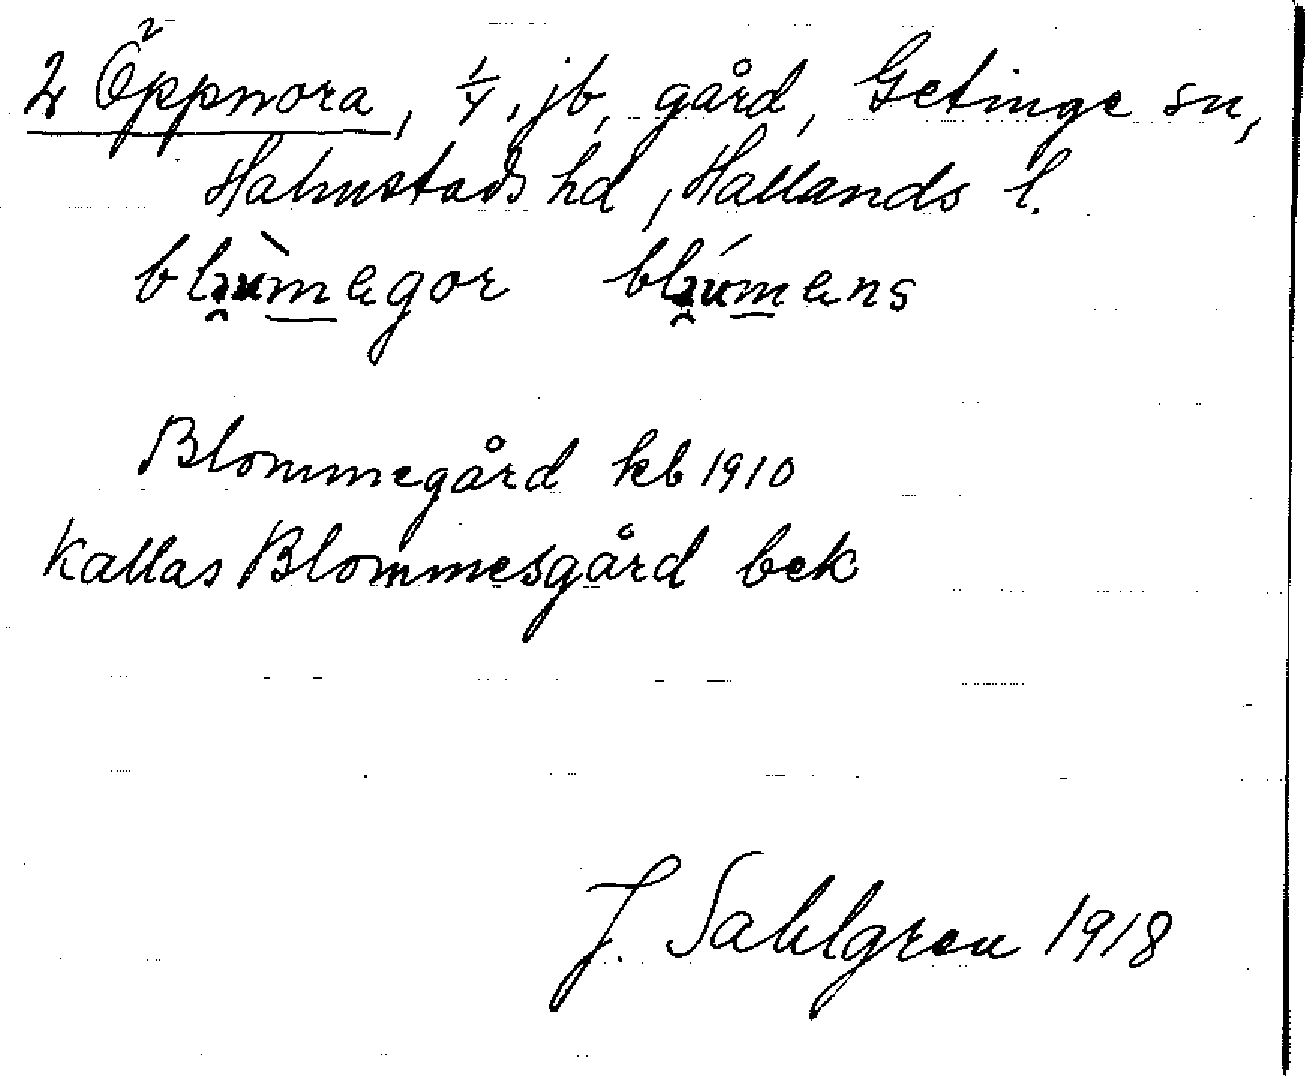 2 Öppnora, 1/4, jb, gård, Getinge sn,
Halmstads hd, Hallands l.
Blommegård kb 1910
Kallas Blommesgård bek
J. Sahlgren 1918